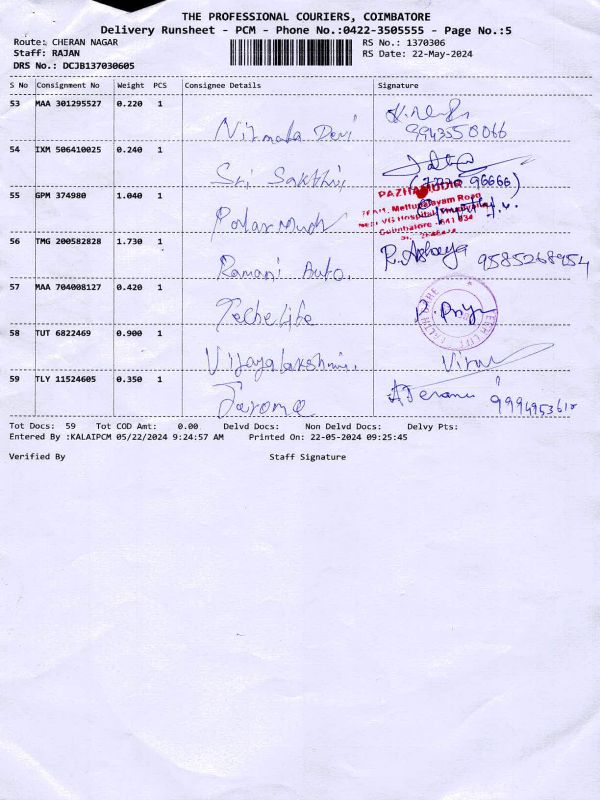 THE PROFESSIONAL COURIERS, COIMBATORE
Delivery Runsheet - PCM - Phone No.:0422-3505555 - Page No.:5
Route: CHERAN NAGAR RS No.: 1370306
Staff: RAJAN RS Date: 22-May-2024
DRS No.: DCJB137030605
S No Consignment No Weight PCS Consignee Details Signature
53 MAA 301295527 0.220 1
Nirmala Devi 9943558066
54 IXM 506410025 0.240 1
Sri Sakthi
55 GPM 374980 1.040 1
96666)
Mettupalayam Road
Hospital
Coimbatore - 641 034
56 TMG 200582828 1.730 1
Ramani Auto. R. Akhaya 9585268954
57 MAA 704008127 0.420 1
Techelife R. Priya
58 TUT 6822469 0.900 1
Vijayalakshmi.
59 TLY 11524605 0.350 1
Tot Docs: 59 Tot COD Amt: 0.00 Delvd Docs: Non Delvd Docs: Delvy Pts:
Entered By :KALAIPCM 05/22/2024 9:24:57 AM Printed On: 22-05-2024 09:25:45
Verified By Staff Signature